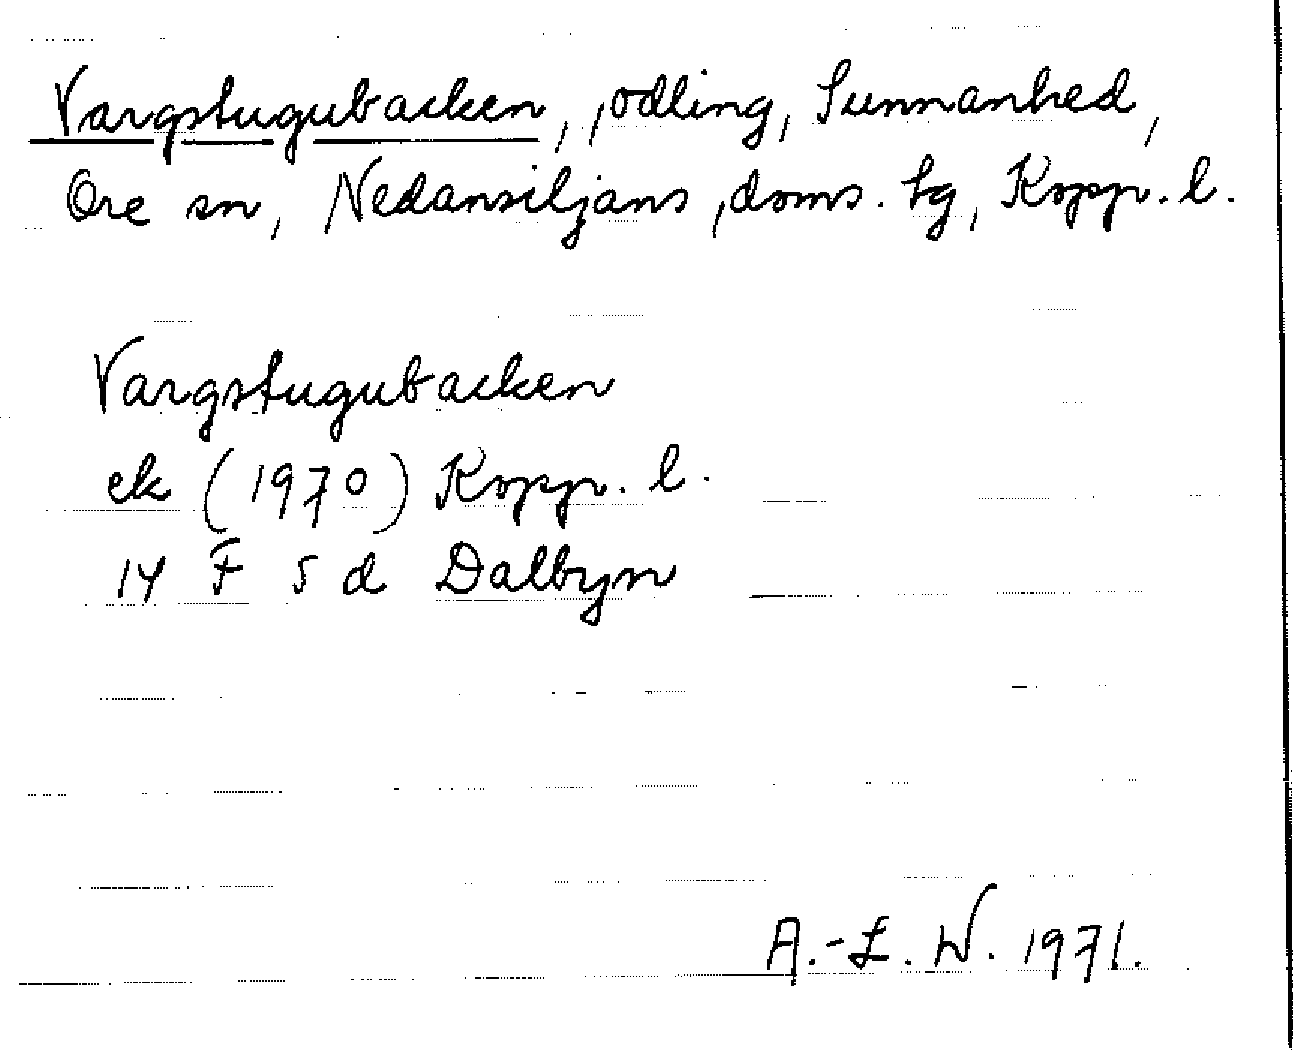 Vargstugubacken, odling, Sunnanhed,
Ore sn, Nedansiljans doms. tg, Kopp. l.
Vargstugubacken
ek (1970) Kopp. l.
14 F 5 d Dalbyn
A.-L. W. 1971.